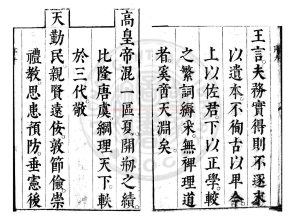 王言夫務實得則不逐末
以遺本不徇古以卑今
上以佐君下以正學較
之繁詞縟采無裨理道
者奚啻天淵矣
高皇帝混一區夏開剏之績
比隆唐虞綱理天下軼
於三代敬
天勤民親賢遠佞敦節儉崇
禮教思患預防垂憲後